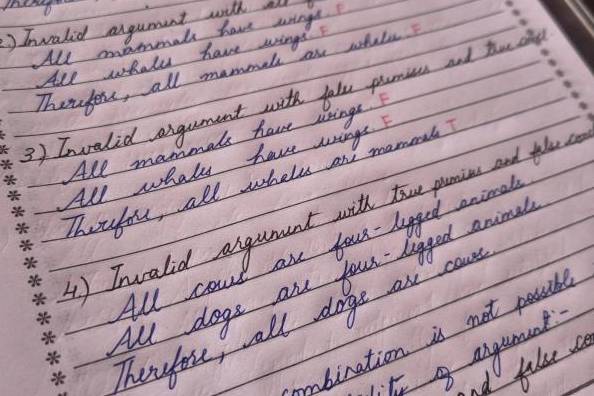 2) Invalid argument with all
All mammals have wings. F
All whales have wings. F
Therefore, all mammals are whales. F
3) Invalid argument with false premises and true
All mammals have wings. F
All whales have wings. F
Therefore, all whales are mammals T
4.) Invalid argument with true premises and false
All cows are four-legged animals.
All dogs are four-legged animals.
Therefore, all dogs are cows.
combination is not possible
of argument:-
and false